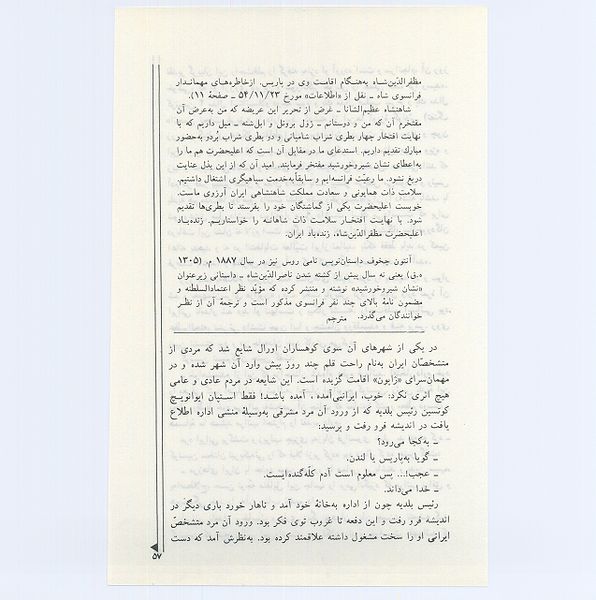 مظفرالدّین‌شاه به‌هنگام اقامت وی در پاریس. از خاطره‌های مهماندار
فرانسوی شاه ـ نقل از «اطلاعات» مورخ ۵۴/۱۱/۲۳ ـ صفحهٔ ۱۱).
شاهنشاه عظیم‌الشانا ـ غرض از تحریر این عریضه که من به‌عرض آن
مفتخرم آن که من و دوستانم ـ ژول برونل و ابل‌شنه ـ میل داریم که با
نهایت افتخار چهار بطری شراب شامپانی و دو بطری شراب بُردو به‌حضور
مبارک تقدیم داریم. استدعای ما در مقابل آن است که اعلیحضرت هم ما را
به‌اعطای نشان شیروخورشید مفتخر فرمایند. امید آن که از این بذل عنایت
دریغ نشود. ما رعیّت فرانسه‌ایم و سابقاً به‌خدمت سپاهیگری اشتغال داشتیم.
سلامت ذات همایونی و سعادت مملکت شاهنشاهی ایران آرزوی ماست.
خوبست اعلیحضرت یکی از گماشتگان خود را بفرستد تا بطری‌ها تقدیم
شود. با نهایت افتخار سلامت ذات شاهانه را خواستاریم. زنده‌باد
اعلیحضرت مظفرالدّین‌شاه، زنده‌باد ایران.
آنتون چخوف داستان‌نویس نامی روس نیز در سال ۱۸۸۷ م. (۱۳۰۵
ه‍.ق) یعنی نه سال پیش از کشته شدن ناصرالدّین‌شاه ـ داستانی زیرعنوان
«نشان شیروخورشید» نوشته و منتشر کرده که مؤیّد نظر اعتمادالسلطنه و
مضمون نامهٔ بالای چند نفر فرانسوی مذکور است و ترجمهٔ آن از نظر
خوانندگان می‌گذرد. مترجم
در یکی از شهرهای آن سوی کوهساران اورال شایع شد که مردی از
متشخصّان ایران به‌نام راحت قلم چند روز پیش وارد آن شهر شده و در
مهمان‌سرای «ژاپون» اقامت گزیده است. این شایعه در مردم عادی و عامی
هیچ اثری نکرد: خوب، ایرانیی‌آمده، آمده باشد! فقط استپان ایوانویچ
کوتسین رئیس بلدیه که از ورود آن مرد مشرقی به‌وسیلهٔ منشی اداره اطلاع
یافت در اندیشه فرو رفت و پرسید:
ـ به‌کجا می‌رود؟
ـ گویا به‌پاریس یا لندن.
ـ عجب!... پس معلوم است آدم کلّه‌گنده‌ایست.
ـ خدا می‌داند.
رئیس بلدیه چون از اداره به‌خانهٔ خود آمد و ناهار خورد باری دیگر در
اندیشه فرو رفت و این دفعه تا غروب توی فکر بود. ورود آن مرد متشخصّ
ایرانی او را سخت مشغول داشته علاقمند کرده بود. به‌نظرش آمد که دست
۵۷